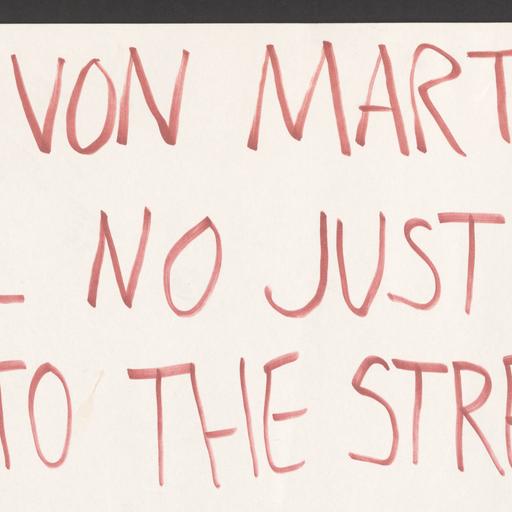 VON MART
NO JUST
TO THE STRE